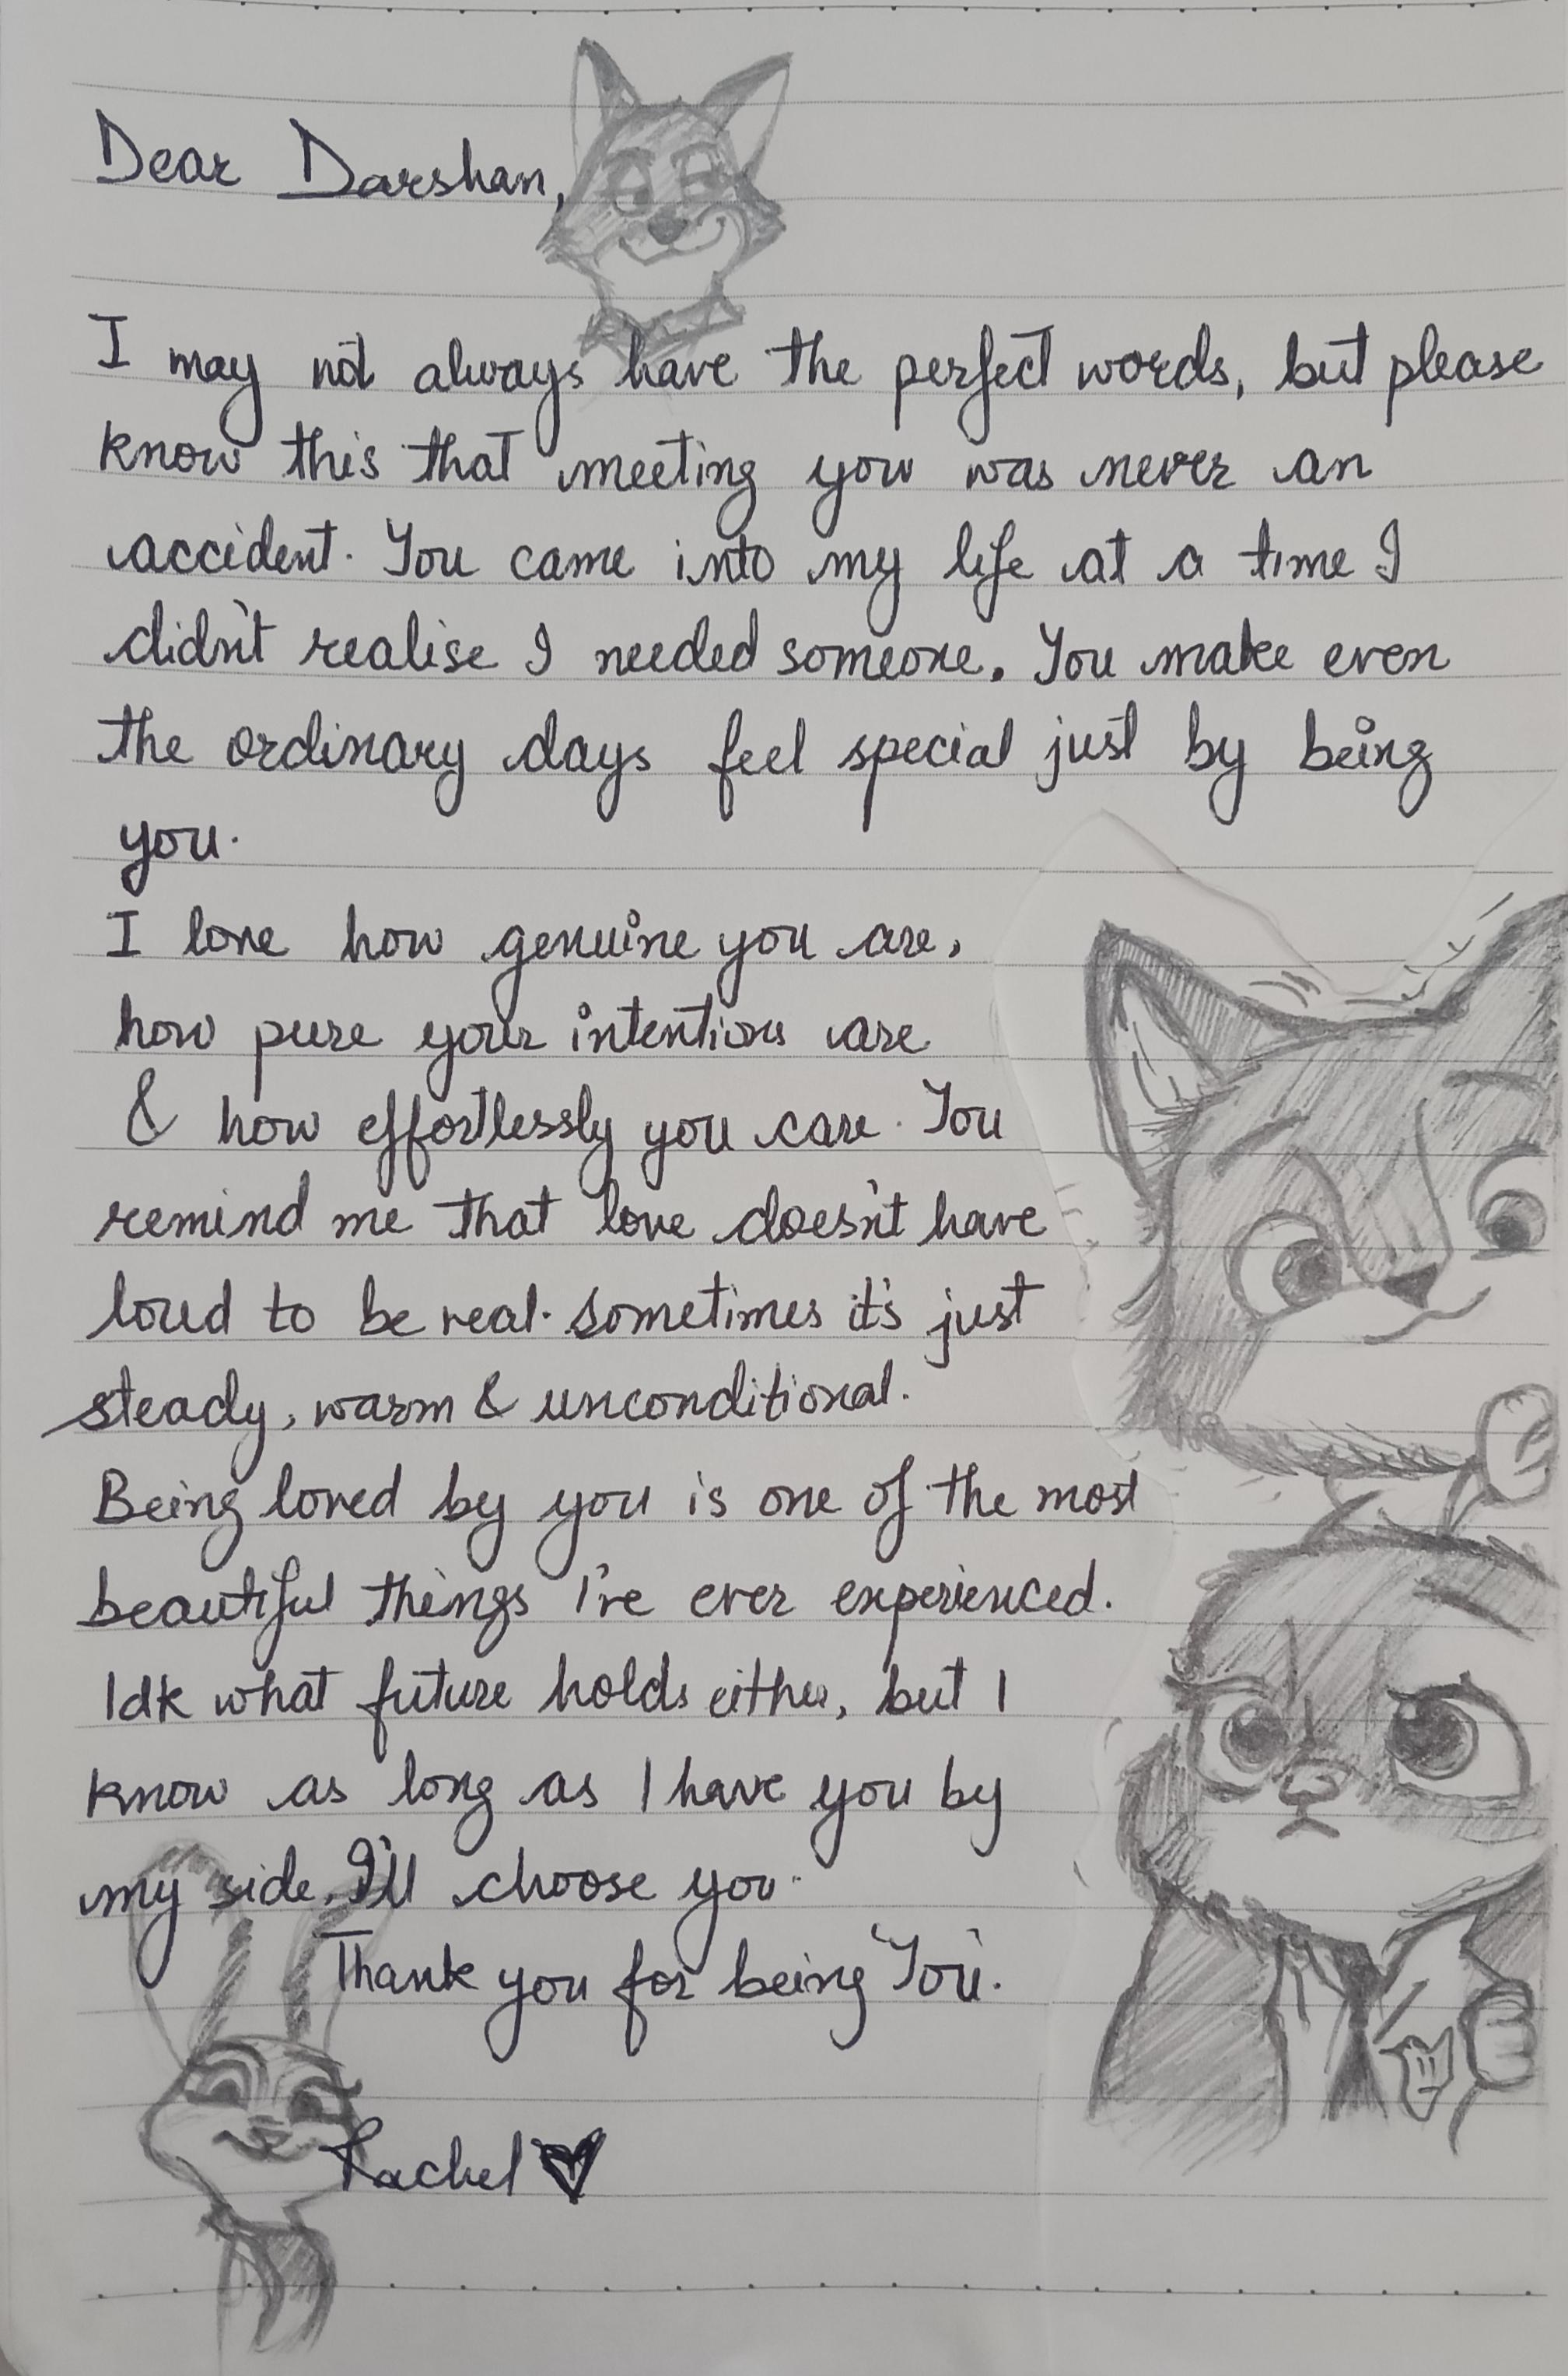 Dear Darshan,
I may not always have the perfect words, but please
know this that meeting you was never an
accident. You came into my life at a time I
didn't realise I needed someone. You make even
the ordinary days feel special just by being
you.
I love how genuine you are,
how pure your intentions are
& how effortlessly you care. You
remind me that love doesn't have
loud to be real. Sometimes it's just
steady, warm & unconditional.
Being loved by you is one of the most
beautiful things I've ever experienced.
Idk what future holds either, but I
know as long as I have you by
my side, I'll choose you.
Thank you for being 'You'.
Rachel ♥